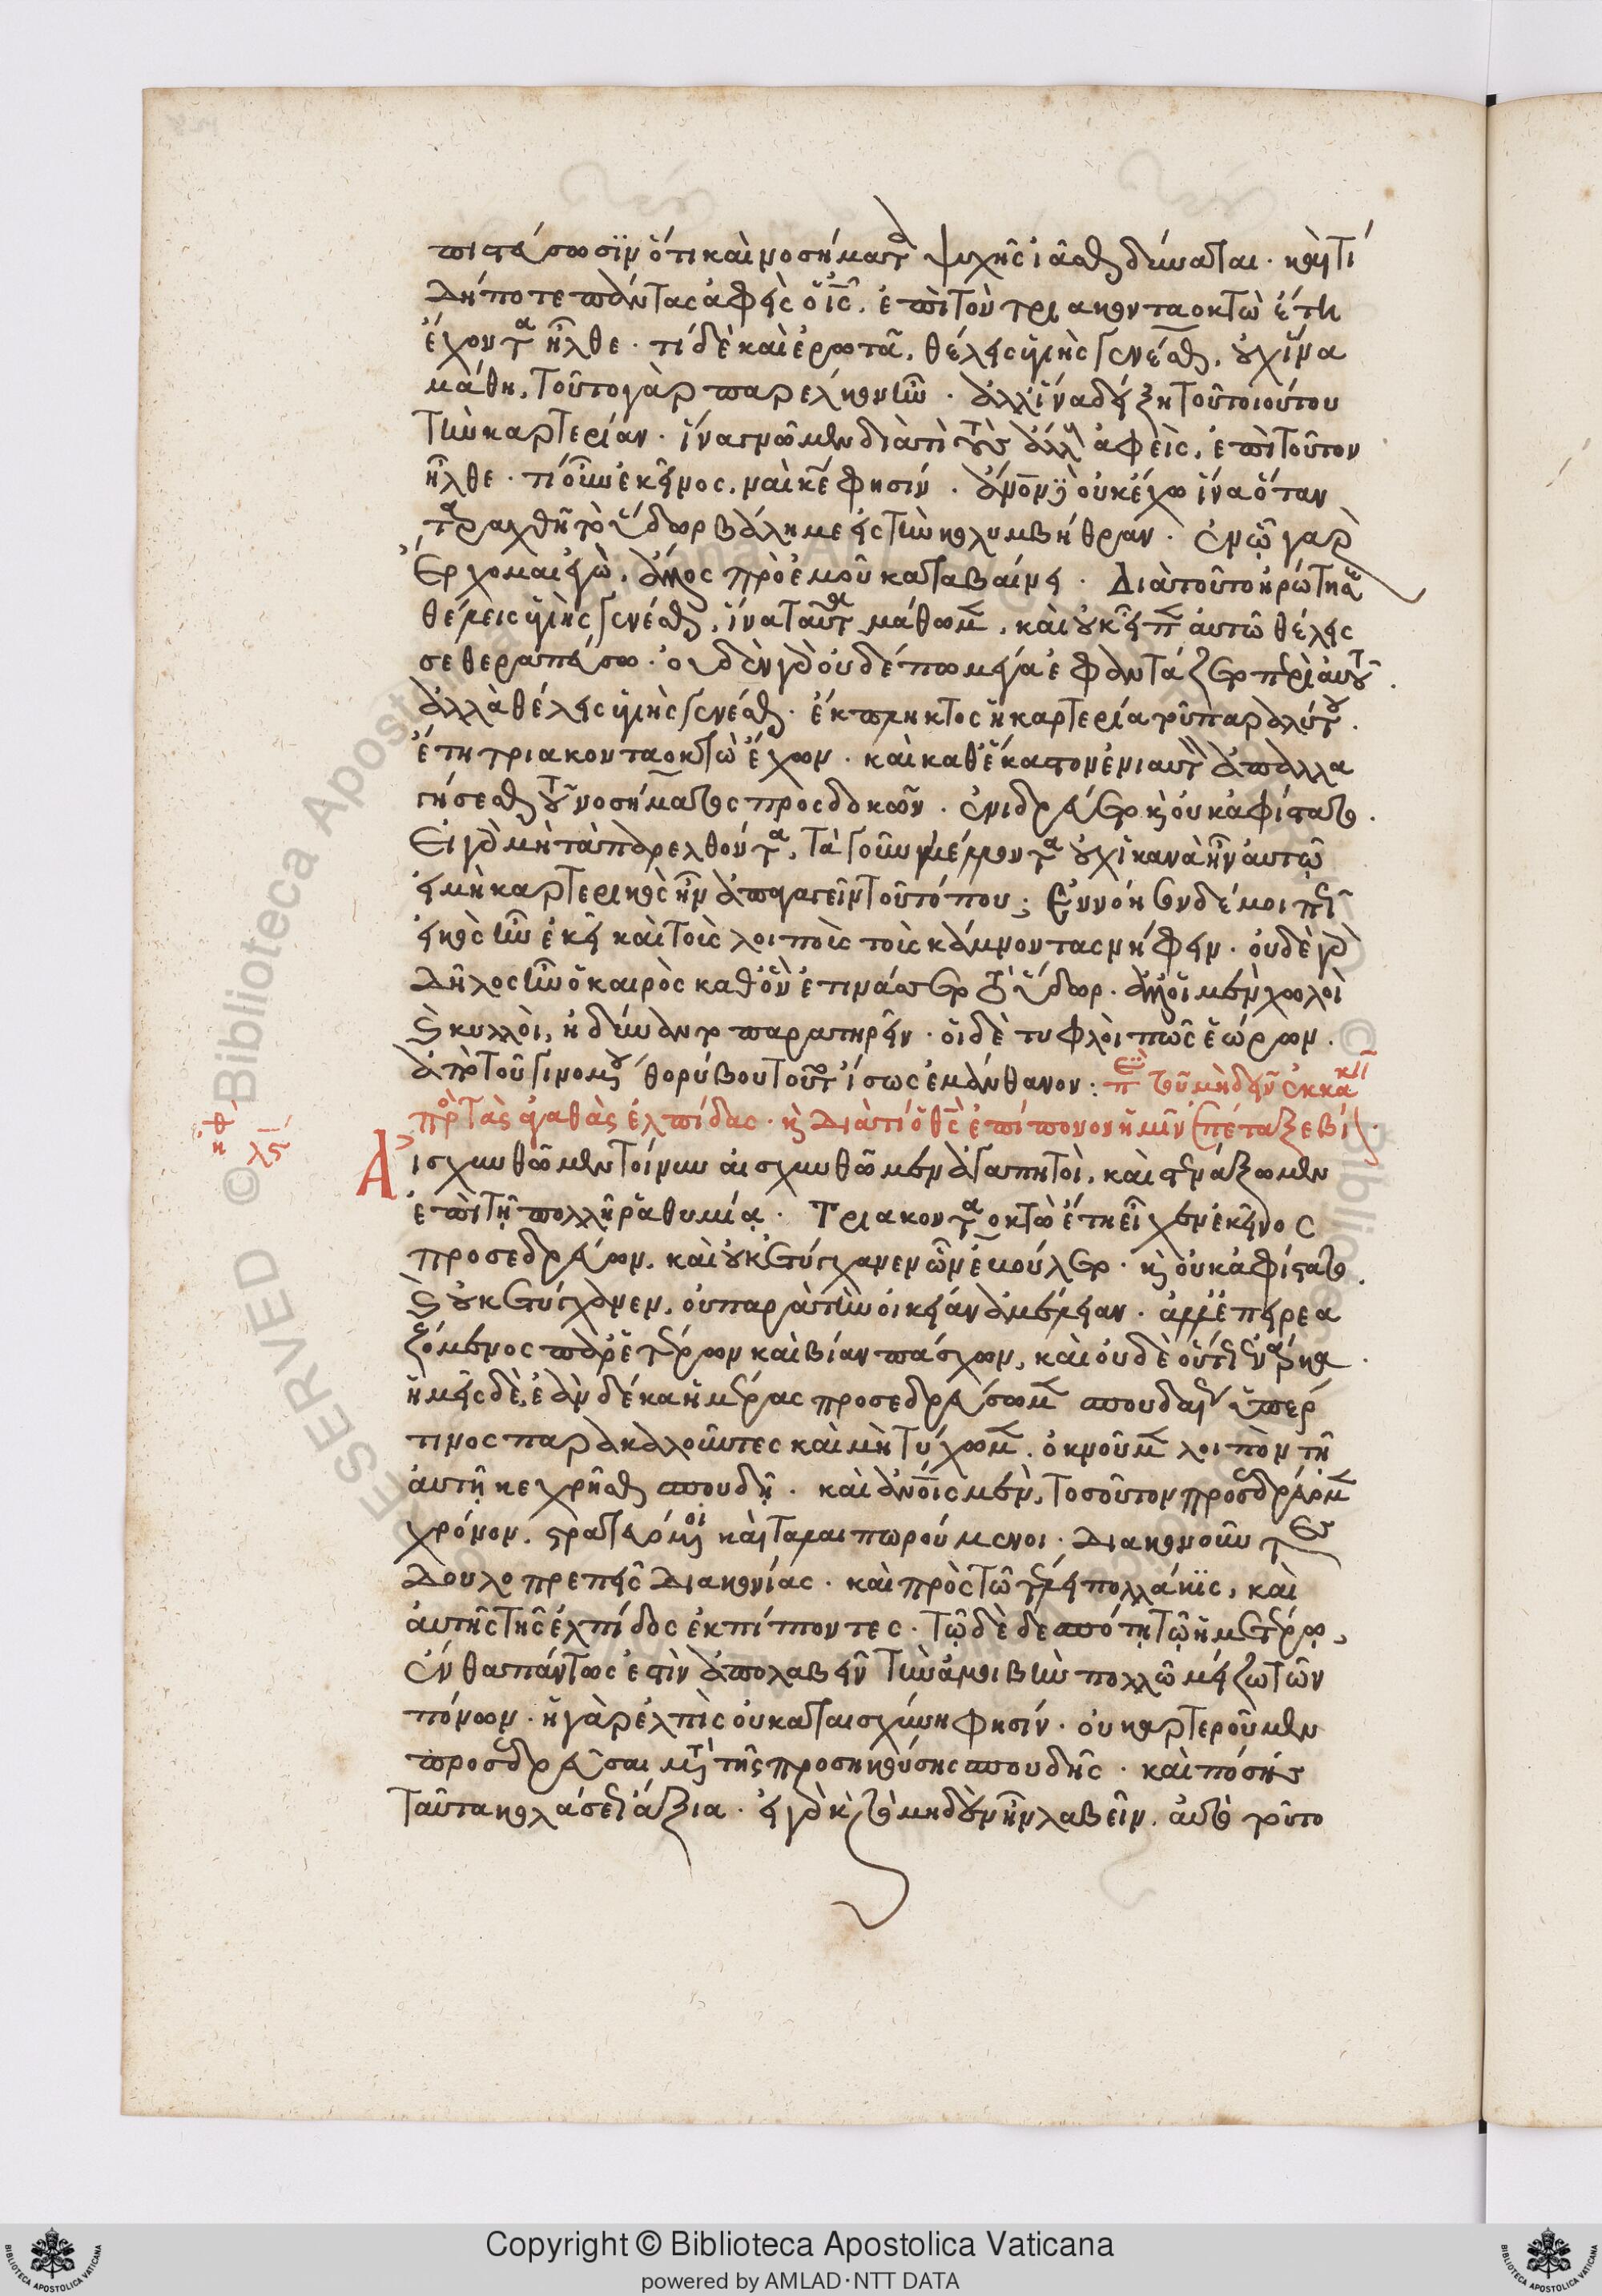 πιστεύσωσιν ὅτι καὶ νοσήματα ψυχῆς ἰᾶσθαι δύναται. καὶ τί
δήποτε πάντας ἀφεὶς ὁ ἰς, ἐπὶ τὸν τριακονταοκτὼ ἔτη
ἔχοντα ἦλθε. τί δὲ καὶ ἐρωτᾶ, θέλεις ὑγιὴς γενέσθαι, οὐχ ἵνα
μάθη, τοῦτο γὰρ παρέλκον ἦν. ἀλλ' ἵνα δείξη τοῦ τοιούτου
τὴν καρτερίαν. ἵνα γνῶμεν διατί τοὺς ἄλλους ἀφεὶς, ἐπὶ τοῦτον
ἦλθε. τί οὖν ἐκεῖνος, ναὶ κε φησίν. ἄνον δὲ οὐκ ἔχω ἵνα ὅταν
ταραχθῆ τὸ ὕδωρ βάλη με εἰς τὴν κολυμβήθραν. ἐν ᾧ γὰρ
ἔρχομαι ἐγὼ, ἄλλος πρὸ ἐμοῦ καταβαίνει. Διὰ τοῦτο ἠρώτησε
θέλεις ὑγιὴς γενέσθαι, ἵνα ταῦτα μάθωμεν, καὶ οὐκ εἶπεν αὐτῶ θέλεις
σε θεραπεύσω. οὐδὲν γὰρ οὐδέπω μέγα ἐφαντάζετο περὶ αὐτοῦ.
ἀλλὰ θέλεις ὑγιὴς γενέσθαι. ἔκπληκτος ἡ καρτερία τοῦ παραλύτου.
ἔτη τριακονταοκτὼ ἔχων. καὶ καθ' ἕκαστον ἐνιαυτὸν ἀπαλλα
γήσεσθαι τοῦ νοσήματος προσδοκῶν. ἐνιδρεύετο κ οὐκ ἀφίστατο.
Εἰ γὰρ μὴ τὰ παρελθόντα, τὰ γοῦν μέλλοντα οὐχ ἱκανὰ ἦν αὐτῷ
εἰ μὴ καρτερικὸς ἦν ἀπαγαγεῖν τοῦ τόπου; Ἐννόησον δέ μοι πῶς
εἰκὸς ἦν ἐκεῖ καὶ τοῖς λοιποῖς τοὺς κάμνοντας νήφειν. οὐδὲ γὰρ
δῆλος ἦν ὁ καιρὸς καθ' ὃν ἐτινάσσετο τὸ ὕδωρ. ἀλλ' οἱ μὲν χωλοὶ
κ κυλλοὶ, ἠδύναντο παρατηρεῖν. οἱ δὲ τυφλοὶ πῶς ἑώρων.
ἀπὸ τοῦ γινομένου θορύβου τοῦτο ἴσως ἐμάνθανον: περὶ τοῦ μηδένα ἐκκακεῖν
πρὸς τὰς ἀγαθὰς ἐλπίδας. κ διατί ὁ θς ἐπίπονον ἡμῖν ἐπέταξε βίον.
ἠθι
λϛ
Αἰσχυνθῶμεν τοίνυν αἰσχυνθῶμεν ἀγαπητοὶ, καὶ στενάξωμεν
ἐπὶ τῇ πολλῇ ῥαθυμίᾳ. Τριακονταοκτὼ ἔτη εἶχεν ἐκεῖνος
προσεδρεύων, καὶ οὐκ ἐτύγχανεν ὧν ἐβούλετο. κ οὐκ ἀφίστατο.
κ οὐκ ἐτύγχανεν, οὐ παρὰ τὴν οἰκείαν ἀμέλειαν. ἀλλ' ἐπηρεα
ζόμενος παρ' ἑτέρων καὶ βίαν πάσχων, καὶ οὐδὲ οὕτως ἐνάρκα.
ἡμεῖς δὲ, ἐὰν δέκα ἡμέρας προσεδρεύσωμεν σπουδαίως ὑπέρ
τινος παρακαλοῦντες καὶ μὴ τύχωμεν, ὀκνοῦμεν λοιπὸν τῆ
αὐτῇ κεχρῆσθαι σπουδῇ. καὶ ἀνοις μὲν, τοσοῦτον προσεδρεύομεν
χρόνον, στρατευόμενοι καὶ ταλαιπωρούμενοι. διακονοῦντες
δουλοπρεπεῖς διακονίας. καὶ πρὸς τῶ τέλει πολλάκις, καὶ
αὐτῆς τῆς ἐλπίδος ἐκπίπτοντες. τῷ δὲ δεσπότῃ τῷ ἡμετέρῳ,
ἔνθα πάντως ἐστὶν ἀπολαβεῖν τὴν ἀμοιβὴν πολλῶ μείζω τῶν
πόνων. ἡ γὰρ ἐλπὶς οὐ καταισχύνει φησίν. οὐ καρτεροῦμεν
προσεδρεῦσαι μετὰ τῆς προσηκούσης σπουδῆς. καὶ πόσης
ταῦτα κολάσεως ἄξια. εἰ γὰρ κ τὸ μηδὲν ἦν λαβεῖν, αὐτὸ τοῦτο
Copyright © Biblioteca Apostolica Vaticana
powered by AMLAD·NTT DATA